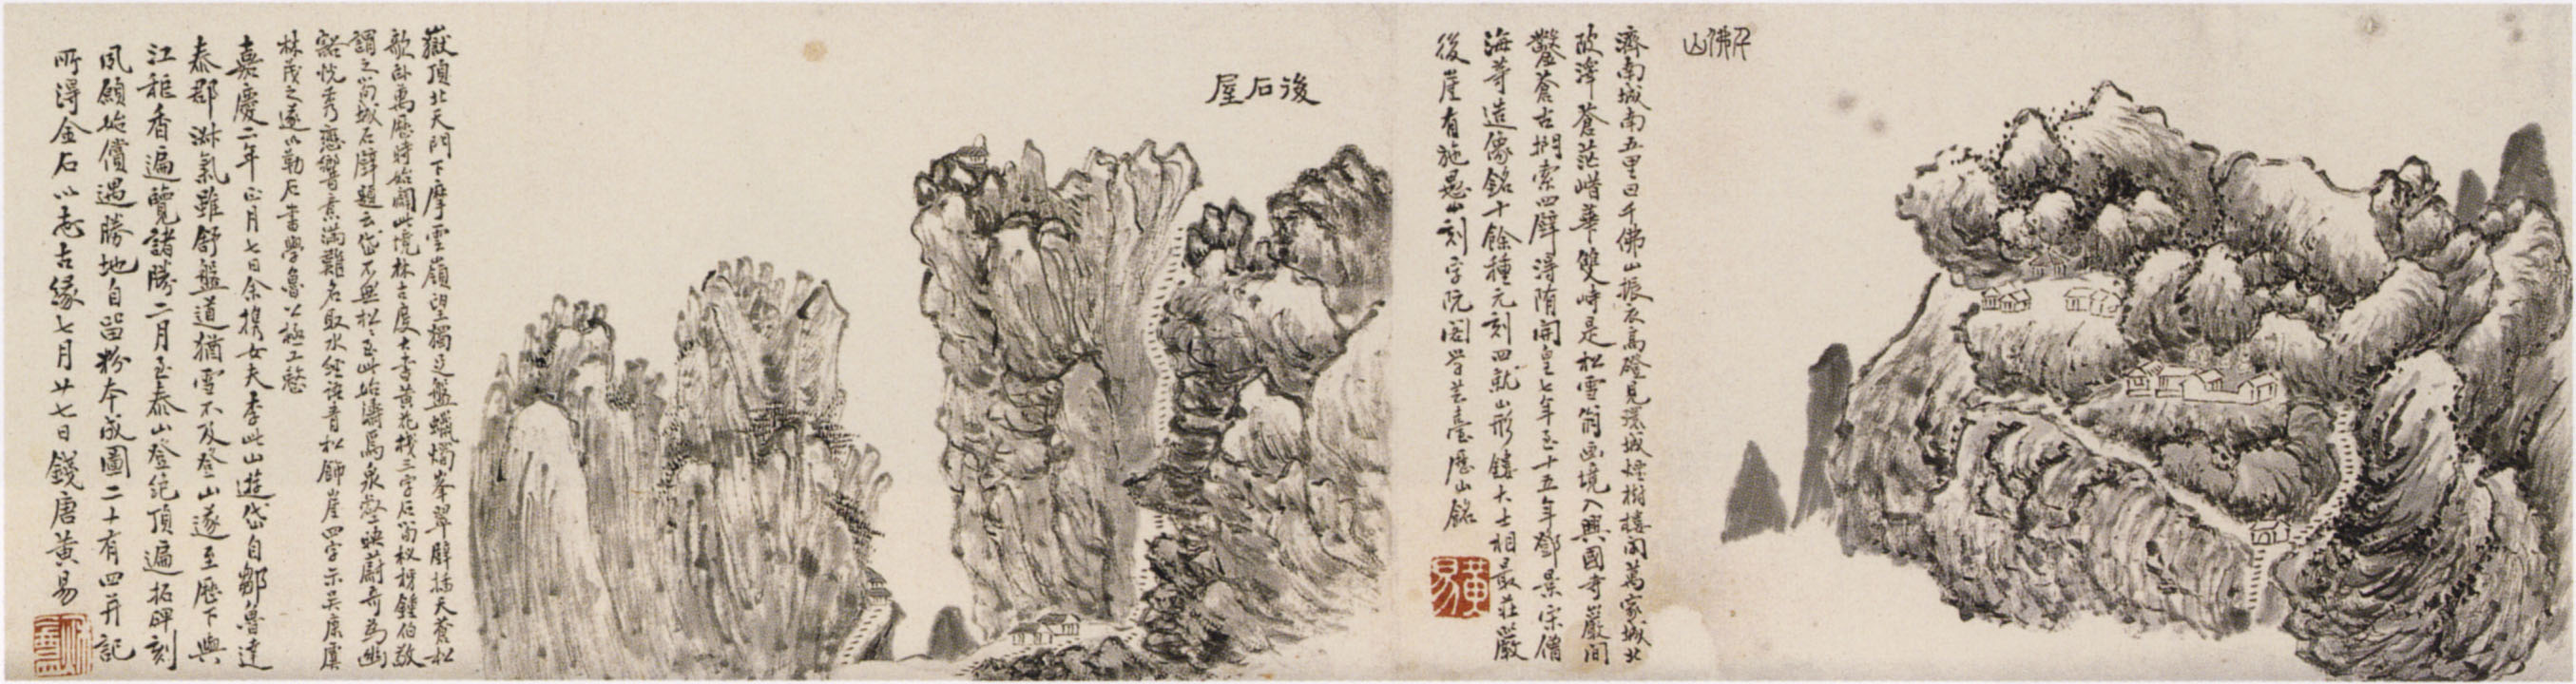 千佛山
濟南城南五里曰千佛山振衣高磴見環城煙樹樓閣萬家城北
陂澤蒼茫鵲華雙峙是松雪翁画境入興國寺巖间
鑿蒼古捫索四壁得隋開皇七年至十五年鄧景宗僧
海等造像銘十餘種元刻四就山形鐫大士相最莊嚴
後崖有施愚山刻字阮閣学芸臺歷山銘
後石屋
嶽頂北天門下摩雲嶺望獨足盤蠟燭峯翠壁插天蒼松
歌卧萬歷時始闢此境林古度大書黄花棧三字石簡枚榜鍾伯敬
謂之簡城石壁題云岱不無松至此始濤焉泉壑映蔚奇為幽
谿恍秀戀響素滿難名取水經語青松飾崖四字示吴康虞
林茂之遂以勒石書學魯公極工整
嘉慶二年正月七日余携女夫李此山遊岱自鄒魯達
泰郡淑氣雖舒盤道猶雪不及登山遂至歷下與
江秬香遍覽諸勝二月至泰山登絶頂遍拓碑刻
夙願始償遇勝地自留粉本成圖二十有四并記
所得金石以志古緣七月廿七日錢唐黄易
黄易